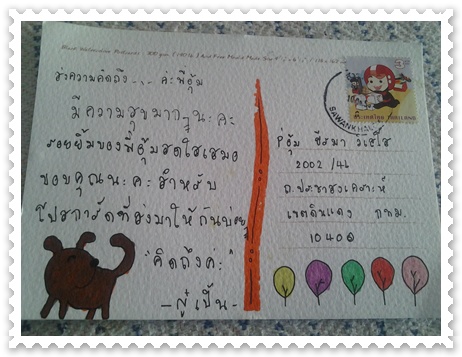 ส่งความคิดถึง... ค่ะพี่อุ้ม
มีความสุขมากๆนะคะ
รอยยิ้มของพี่อุ้มสดใสเสมอ
ขอบคุณนะคะสำหรับ
โปสการ์ดที่ส่งมาให้กันบ่อยๆ
"คิดถึงค่ะ"
3
ประเทศไทย THAILAND
SAWANKHALOK
P'อุ้ม
2002/41
ถ.ประชาสงเคราะห์
เขตดินแดง กทม.
10400